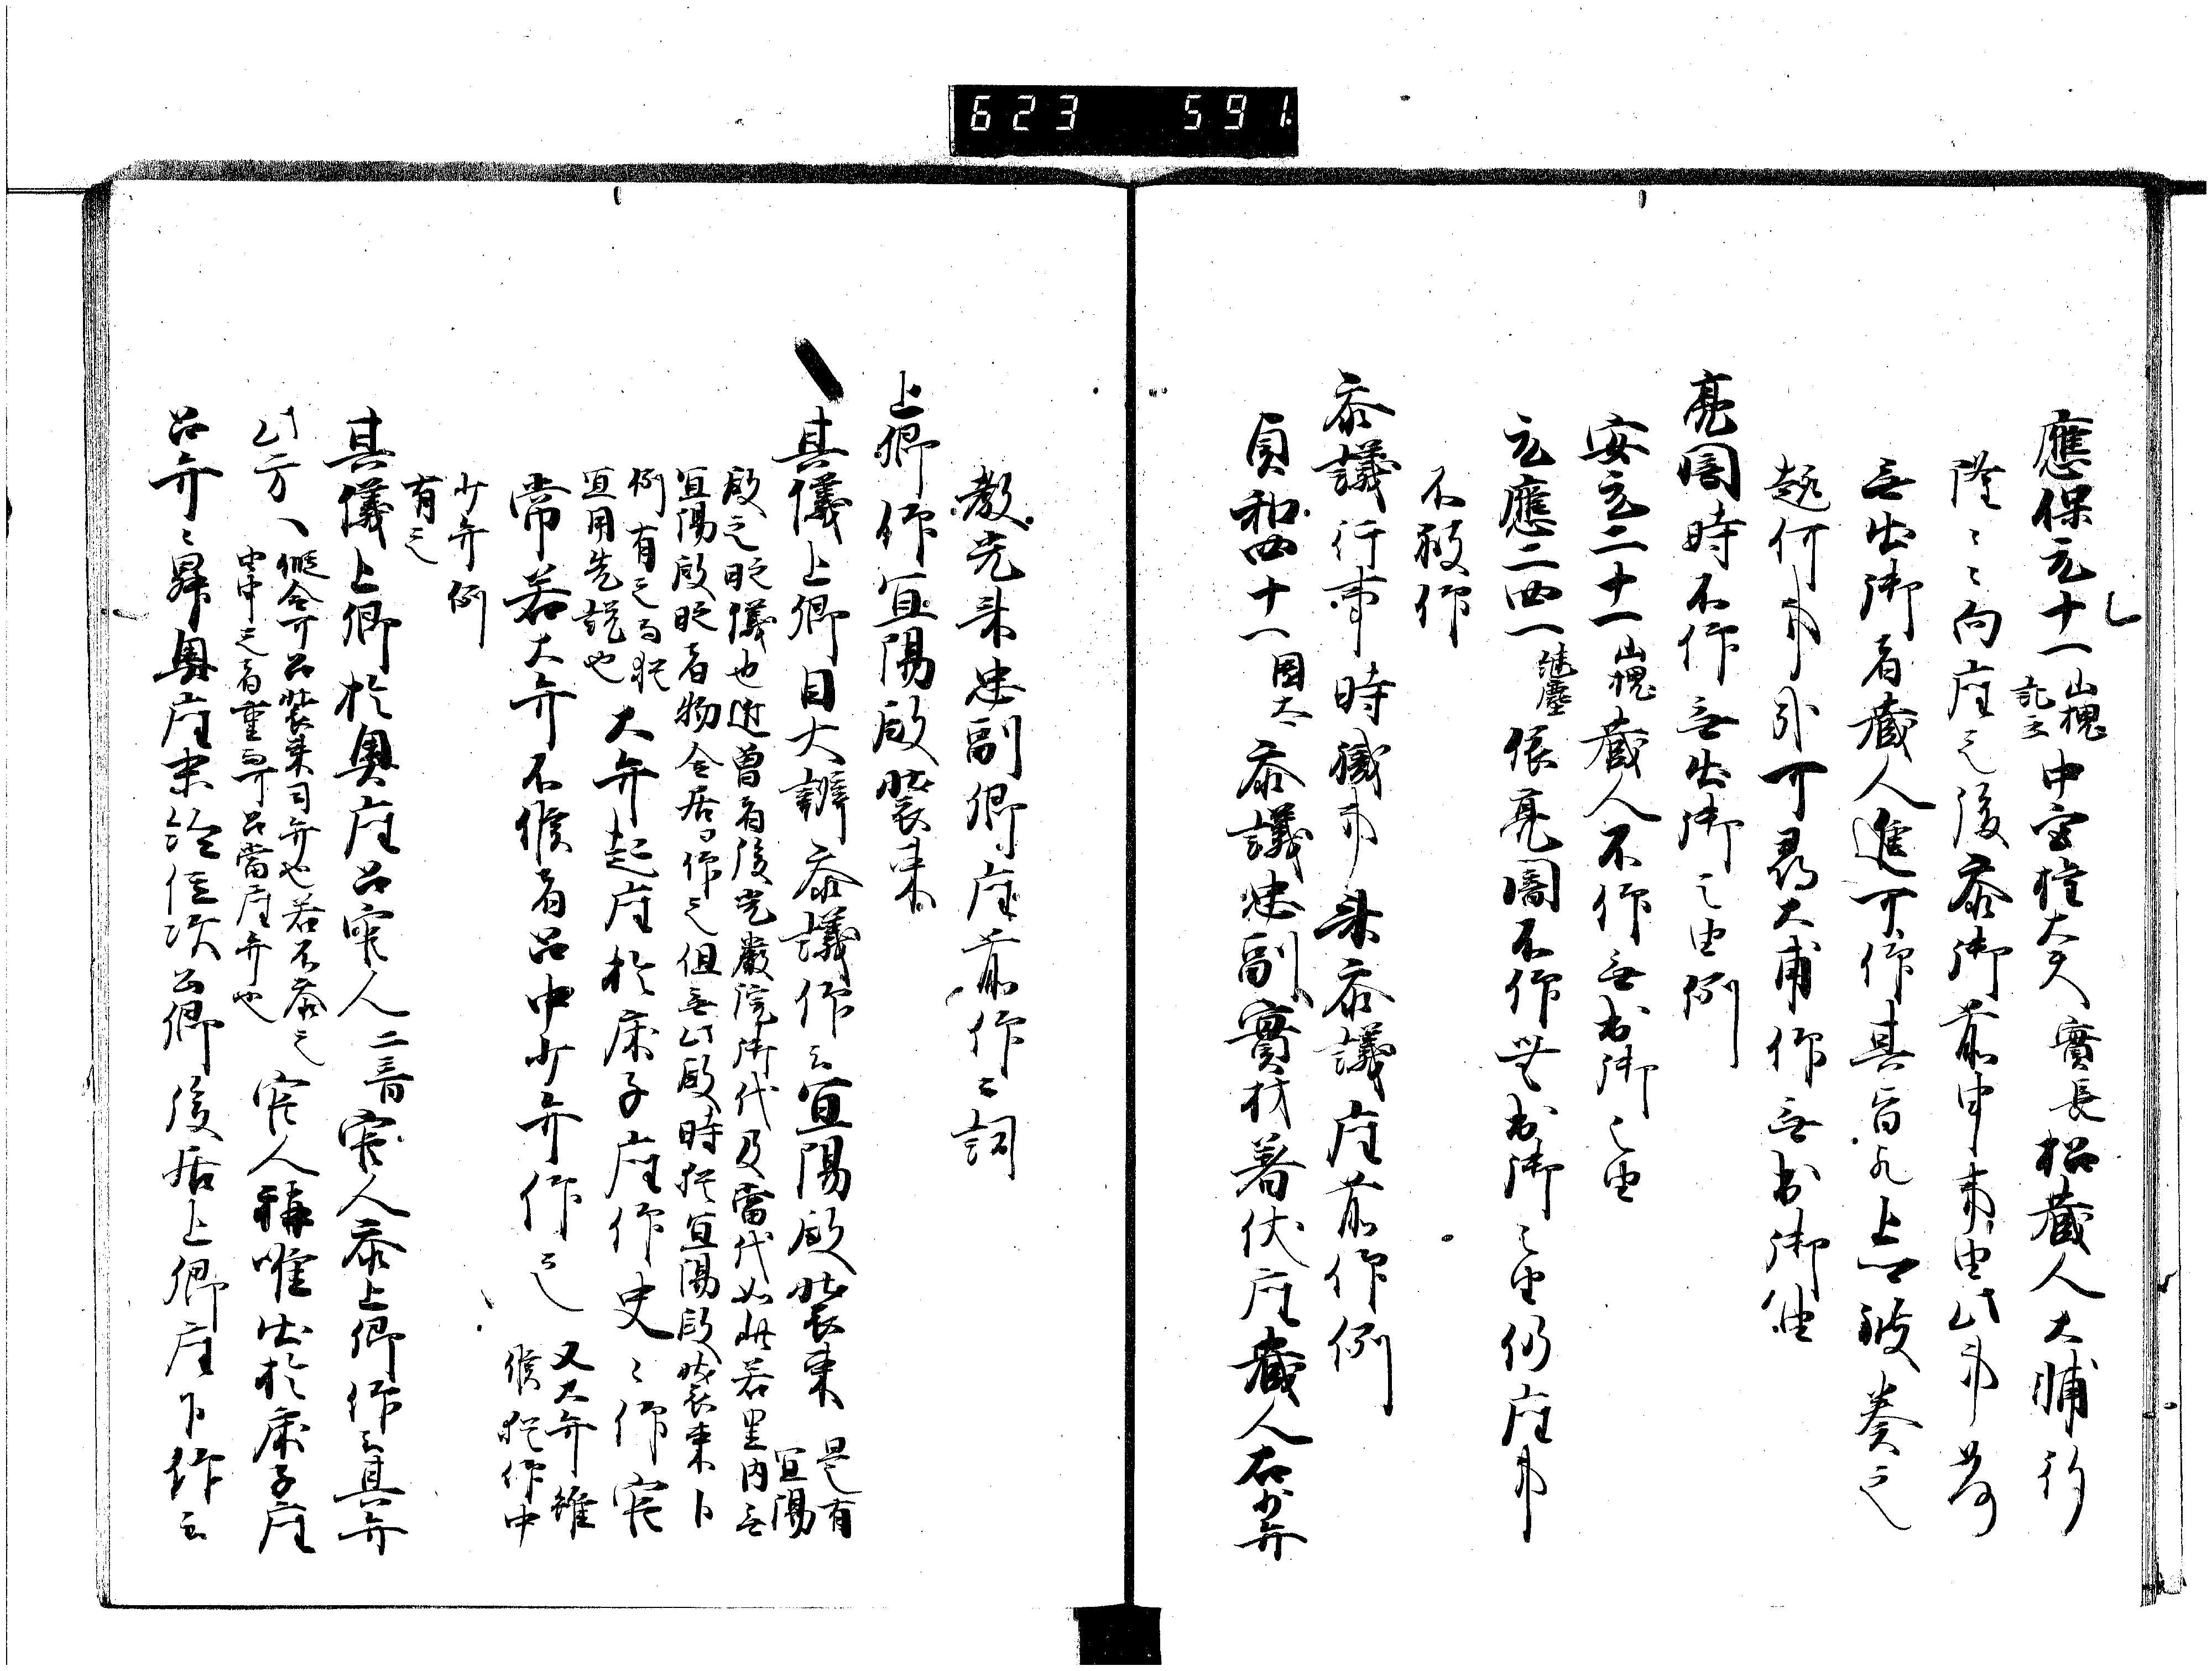 623 591
應保元十一 山槐記云 中宮権大夫 實長 招蔵人大輔行
隆々向座之後参御前申事由此事若
無出御者蔵人進可仰其旨 上 被奏之
趣何事 可尋大甫仰無出御由
亮闇時不仰無出御之由例
安元二十一 山槐 蔵人不仰無出御之由
元應二四一 継塵 依亮闇不仰無出御之由仍座
不被仰
参議行事時職事来参議座前仰例
貞和四十一 園太 参議忠副實材着伏座蔵人右少弁
教光来忠副卿座前仰之詞
上卿仰宜陽殿装束
其儀上卿目大辨参議仰云宜陽殿装束 是有宜陽
殿之時儀也近曽有後光厳院御代及當代如此若里内無
宜陽殿時者物合居仰之但無此殿時於宜陽殿装束ト
例有之
宜用先説也
大弁起座於床子座仰史々仰官
常若大弁不候者召中少弁仰之 又大弁雖候於仰中
少弁例
有之
其儀上卿於奥座召官人 二音 官人参上卿仰云其弁
此方ヘ 縦令弁召装束司弁也若不参之
由申之者重召當座弁也
官人称唯出於床子座
召弁々昇奥座末 位次公卿後居上卿座下仰云